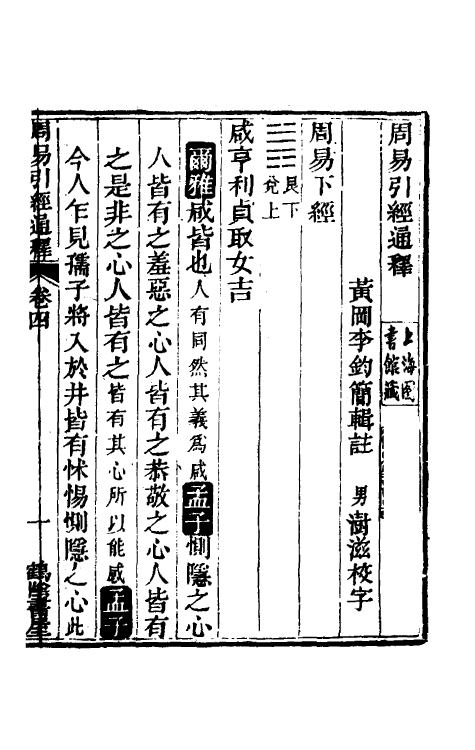 周易引經通釋
上海圖書館藏
黃岡李鈞簡輯註 男澍滋校字
周易下經
䷞ 艮下兌上
咸亨利貞取女吉
爾雅咸皆也人有同然其義爲咸孟子惻隱之心
人皆有之羞惡之心人皆有之恭敬之心人皆有
之是非之心人皆有之皆有其心所以能感孟子
今人乍見孺子將入於井皆有怵惕惻隱之心此
周易引經通釋 卷四 一 鶴陰書屋